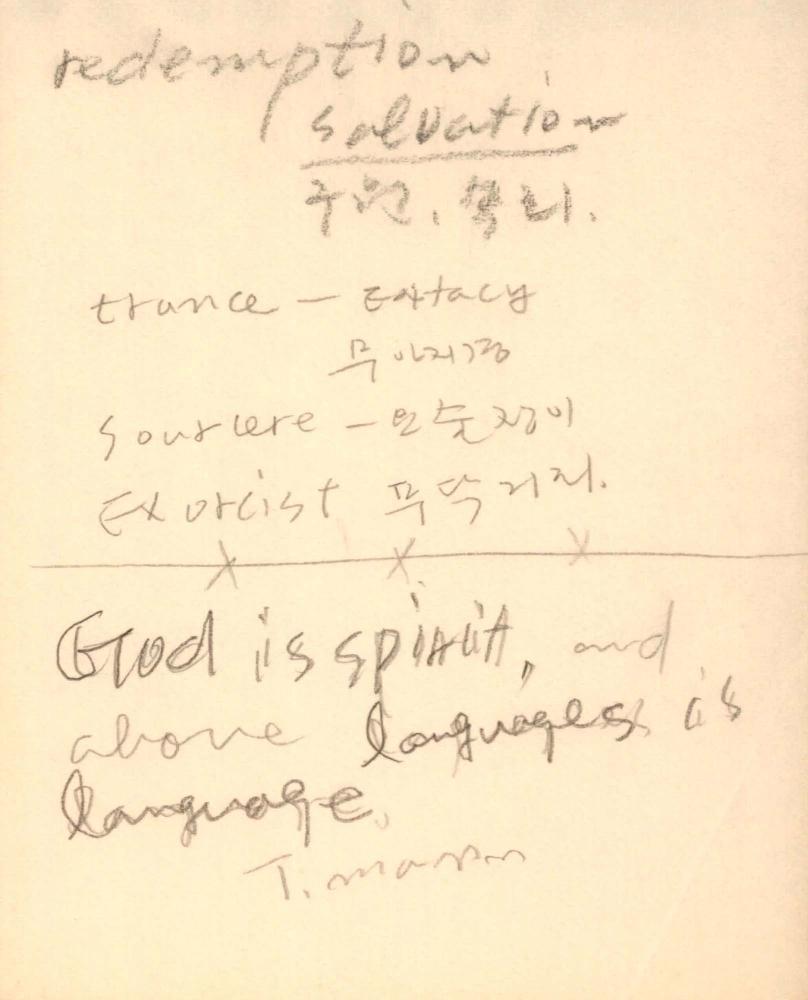 redemption
salvation
구원. 복리.
trance — Extacy
무아지경
Sourcere — 요술쟁이
Exorcist 푸닥거리.
God is spirit, and
above languages is
language.
T. mann